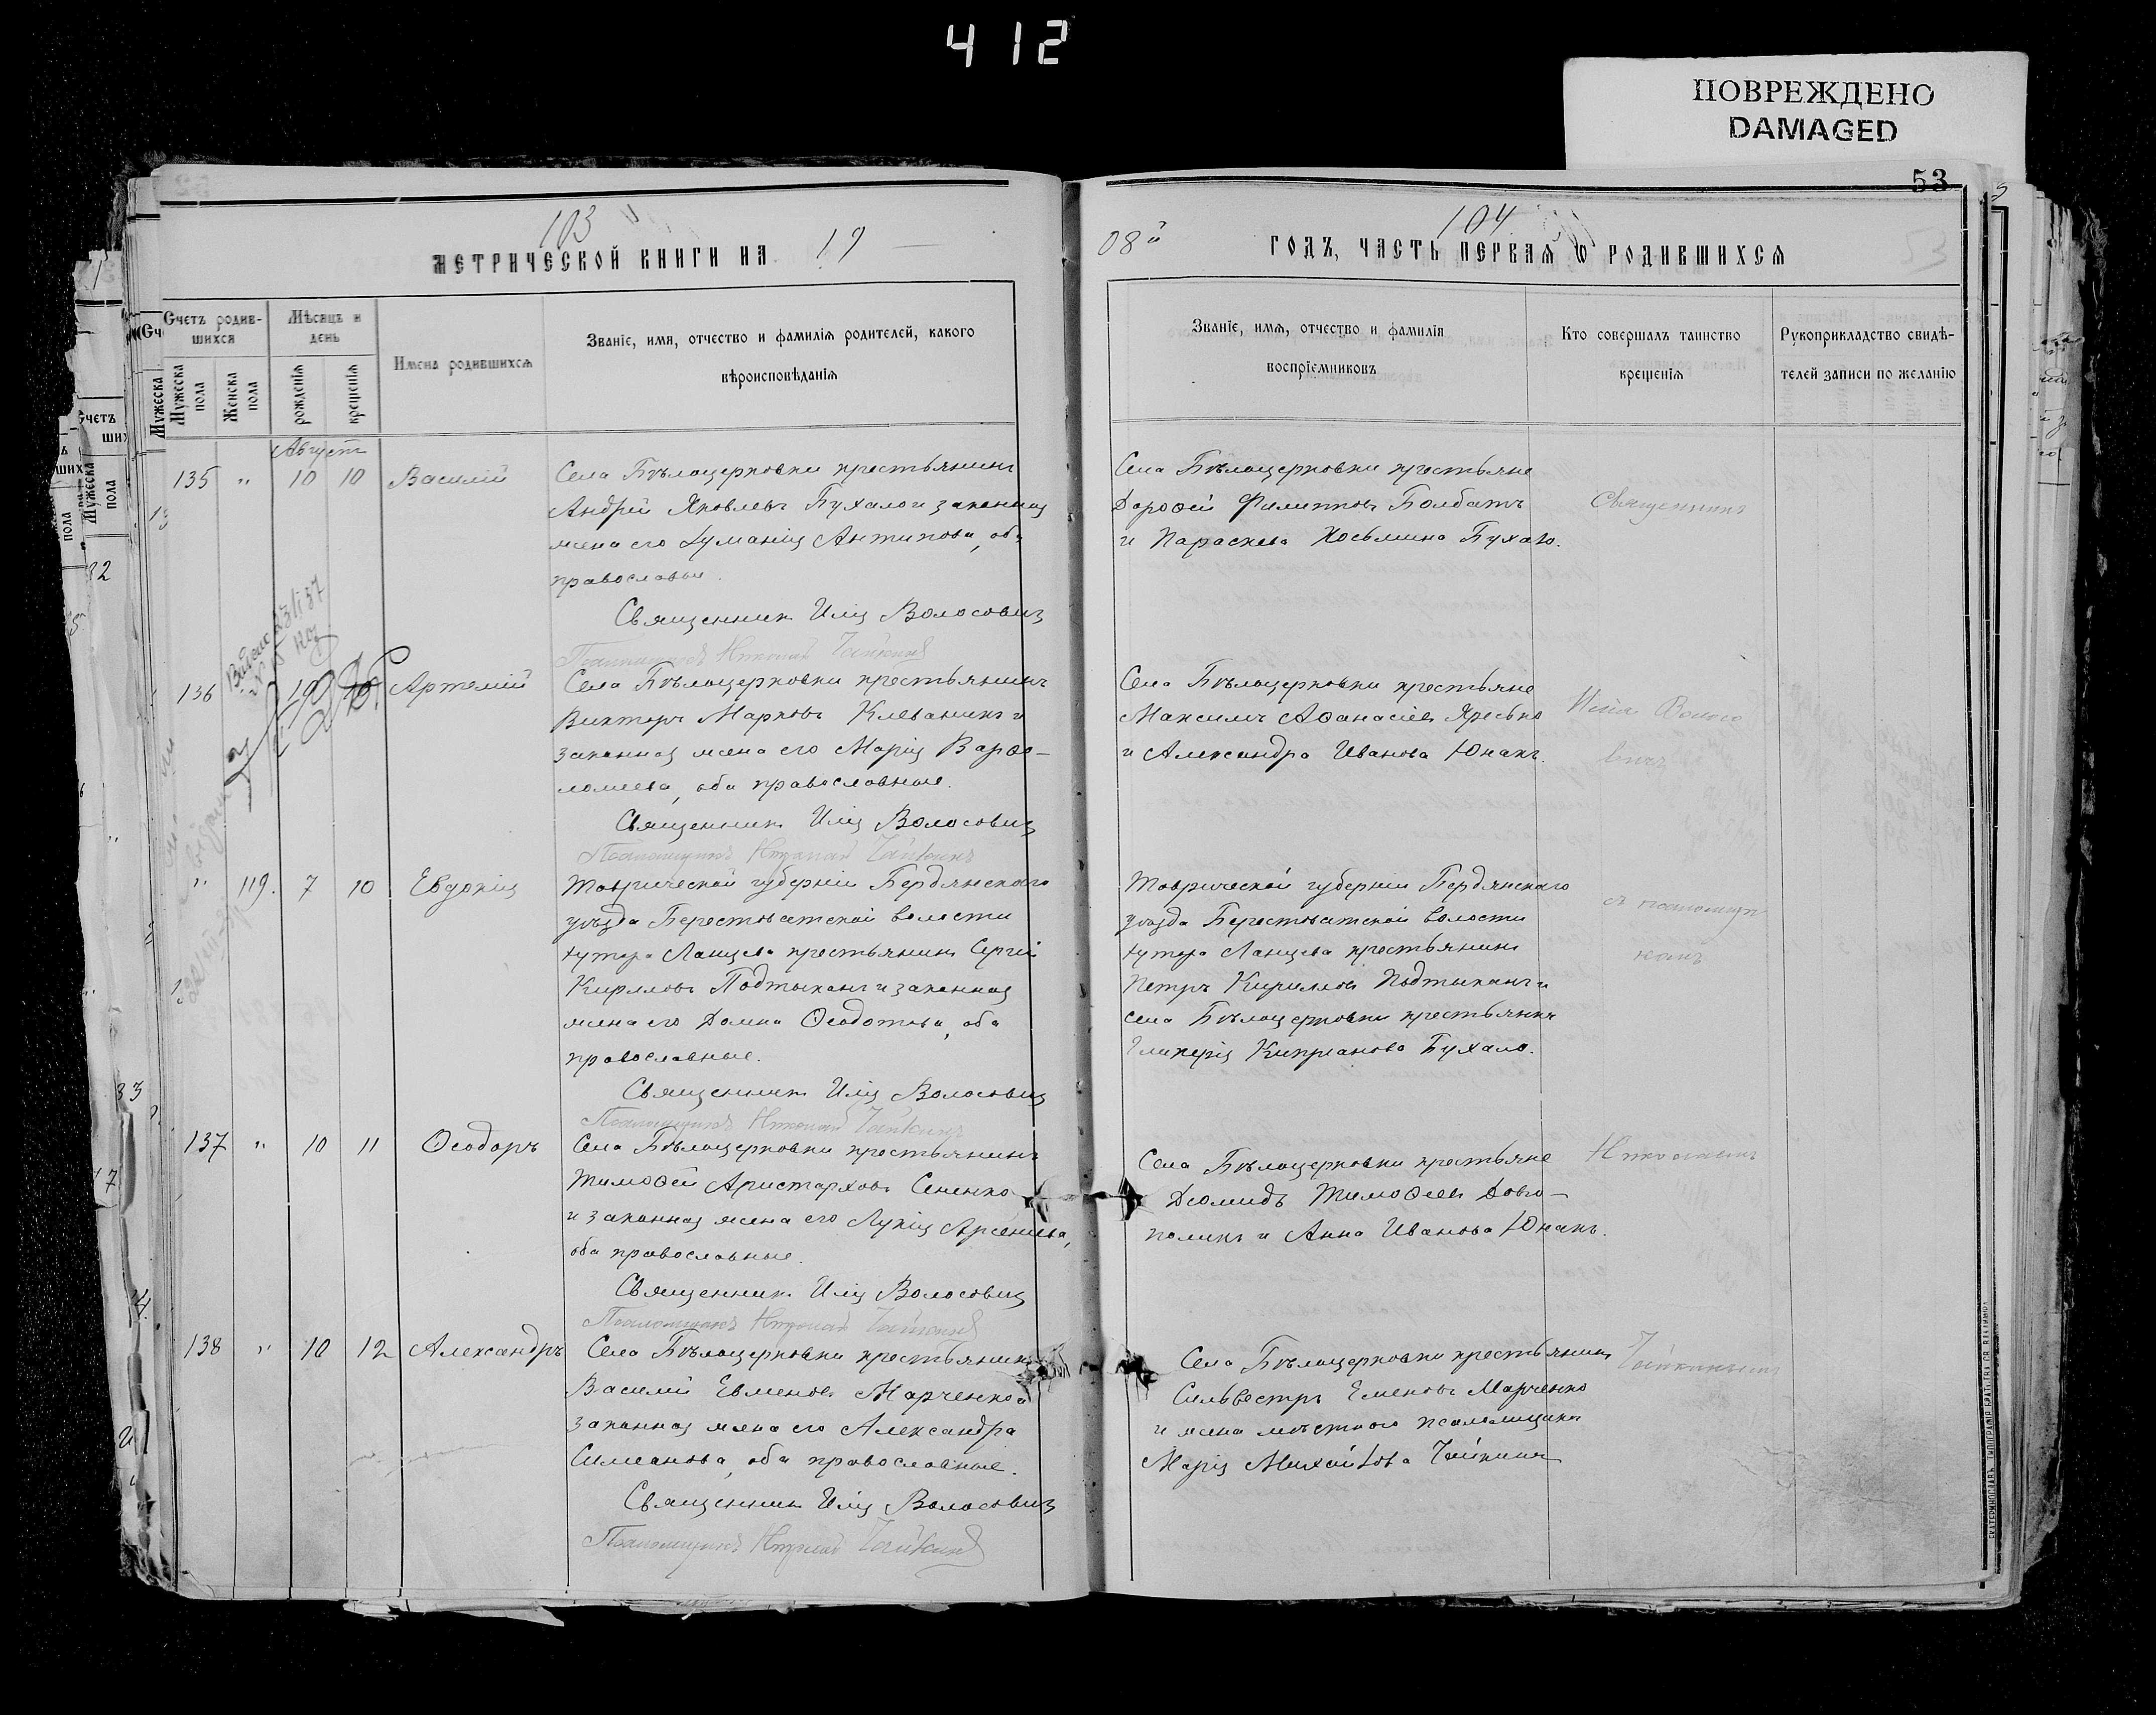 412
ПОВРЕЖДЕНО
DAMAGED
53
103
МЕТРИЧЕСКОЙ КНИГИ НА 19
Счетъ родив-
шихся
Мѣсяцъ и
день
Мужеска пола
Женска пола
рожденія
крещенія
Имена родившихся
Званіе, имя, отчество и фамилія родителей, какого
вѣроисповѣданія
Августъ
135 " 10 10 Василій
Села Бѣлоцерковки крестьянинъ
Андрей Яковлевъ Бухало и законная
жена его Антипова, оба
православные.
Священникъ Илія Волосовичъ
Псаломщикъ Николай Чайкинъ
136 10 Артемій
Села Бѣлоцерковки крестьянинъ
Викторъ Марковъ Клеваникъ и
законная жена его Марія Варѳо-
ломеева, оба православные.
Священникъ Илія Волосовичъ
Псаломщикъ Николай Чайкинъ
" 119. 7 10 Евдокія
Таврической губерніи Бердянскаго
уѣзда Берестоватской волости
хутора Ланцева крестьянинъ Сергій
Кириловъ Подтыканъ и законная
жена его Домна Ѳеодотова, оба
православные.
Священникъ Илія Волосовичъ
Псаломщикъ Николай Чайкинъ
137 " 10 11 Ѳеодоръ
Села Бѣлоцерковки крестьянинъ
Тимоѳей Аристарховъ Сененко
и законная жена его Лукія Арсеніева,
оба православные.
Священникъ Илія Волосовичъ
Псаломщикъ Николай Чайкинъ
138 " 10 12 Александръ
Села Бѣлоцерковки крестьянинъ
Василій Евменовъ Марченко и
законная жена его Александра
оба православные.
Священникъ Илія Волосовичъ
Псаломщикъ Николай Чайкинъ
104
08й ГОДЪ, ЧАСТЬ ПЕРВАЯ Ѡ РОДИВШИХСЯ
Званіе, имя, отчество и фамилія
воспріемниковъ
Кто совершалъ таинство
крещенія
Рукоприкладство свидѣ-
телей записи по желанію
Села Бѣлоцерковки крестьяне
Дороѳей Филипповъ Болбатъ
и Параскева Косьмина Бухало.
Села Бѣлоцерковки крестьяне
Максимъ Аѳанасіевъ Яресько
и Александра Иванова Юнакъ.
Таврической губерніи Бердянскаго
уѣзда Берестоватской волости
хутора Ланцева крестьянинъ
Петръ Кириловъ Подтыканъ и
села Бѣлоцерковки крестьянка
Гликерія Кипріанова Бухало.
Села Бѣлоцерковки крестьяне
Діомидъ Тимоѳеевъ Довго-
поликъ и Анна Иванова Юнакъ.
Села Бѣлоцерковки крестьянинъ
Сильвестръ Еменовъ Марченко
и жена мѣстнаго псаломщика
Марія Михайлова Чайкина
Священникъ
Илія Волосо
вичъ
съ псаломщи
комъ
Николаемъ
Чайкинымъ